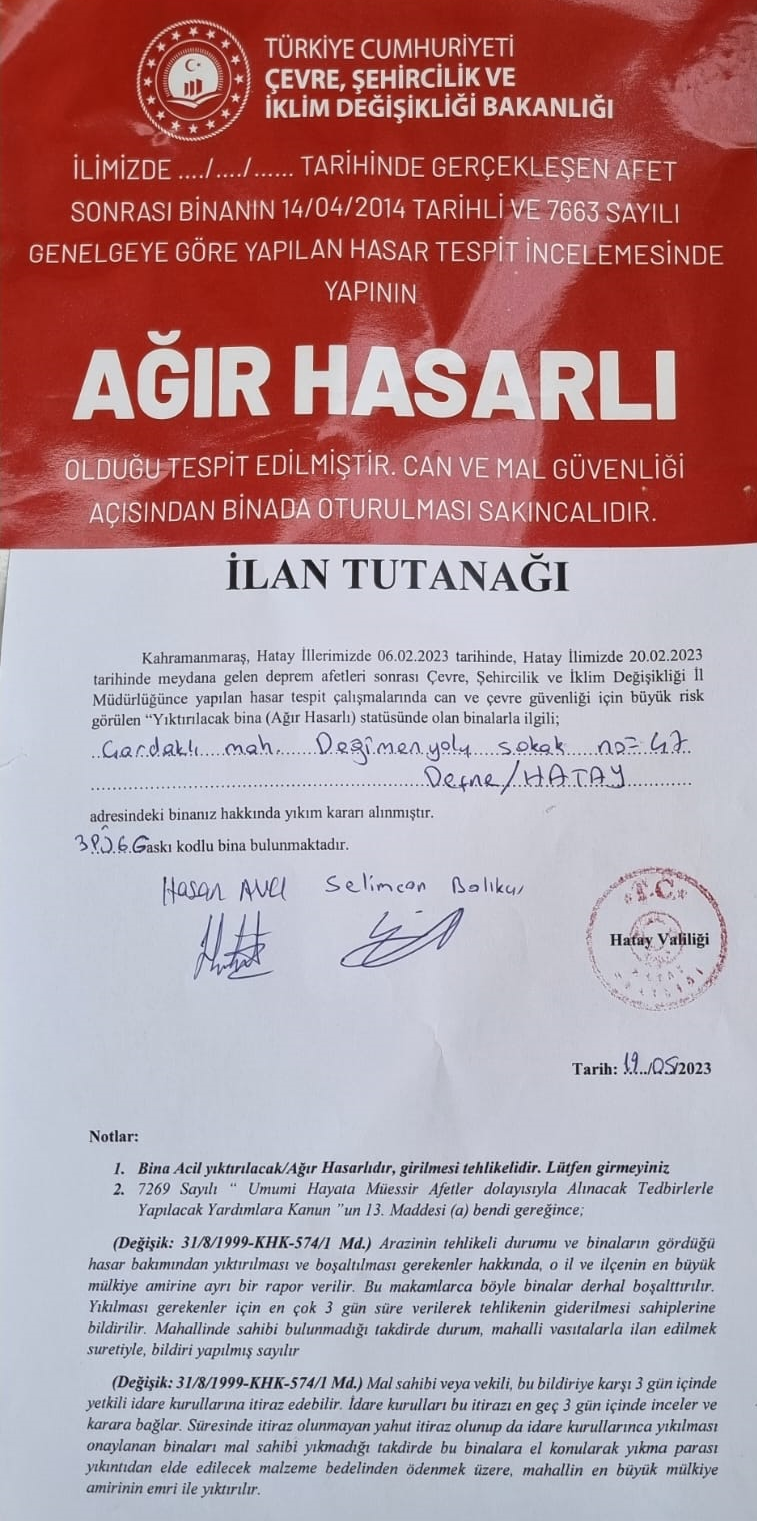 TÜRKİYE CUMHURİYETİ
ÇEVRE, ŞEHİRCİLİK VE
İKLİM DEĞİŞİKLİĞİ BAKANLIĞI
İLİMİZDE ..../..../...... TARİHİNDE GERÇEKLEŞEN AFET
SONRASI BİNANIN 14/04/2014 TARİHLİ VE 7663 SAYILI
GENELGEYE GÖRE YAPILAN HASAR TESPİT İNCELEMESİNDE
YAPININ
AĞIR HASARLI
OLDUĞU TESPİT EDİLMİŞTİR. CAN VE MAL GÜVENLİĞİ
AÇISINDAN BİNADA OTURULMASI SAKINCALIDIR.
İLAN TUTANAĞI
Kahramanmaraş, Hatay İllerimizde 06.02.2023 tarihinde, Hatay İlimizde 20.02.2023
tarihinde meydana gelen deprem afetleri sonrası Çevre, Şehircilik ve İklim Değişikliği İl
Müdürlüğünce yapılan hasar tespit çalışmalarında can ve çevre güvenliği için büyük risk
görülen “Yıktırılacak bina (Ağır Hasarlı) statüsünde olan binalarla ilgili;
mah. Değirmenyolu sokak no= 47
Defne/HATAY
adresindeki binanız hakkında yıkım kararı alınmıştır.
askı kodlu bina bulunmaktadır.
Hasan Avcı Selimcan
T.C.
Hatay Valiliği
Tarih: 19../05/2023
Notlar:
1. Bina Acil yıktırılacak/Ağır Hasarlıdır, girilmesi tehlikelidir. Lütfen girmeyiniz
2. 7269 Sayılı “ Umumi Hayata Müessir Afetler dolayısıyla Alınacak Tedbirlerle
Yapılacak Yardımlara Kanun ”un 13. Maddesi (a) bendi gereğince;
(Değişik: 31/8/1999-KHK-574/1 Md.) Arazinin tehlikeli durumu ve binaların gördüğü
hasar bakımından yıktırılması ve boşaltılması gerekenler hakkında, o il ve ilçenin en büyük
mülkiye amirine ayrı bir rapor verilir. Bu makamlarca böyle binalar derhal boşalttırılır.
Yıkılması gerekenler için en çok 3 gün süre verilerek tehlikenin giderilmesi sahiplerine
bildirilir. Mahallinde sahibi bulunmadığı takdirde durum, mahalli vasıtalarla ilan edilmek
suretiyle, bildiri yapılmış sayılır
(Değişik: 31/8/1999-KHK-574/1 Md.) Mal sahibi veya vekili, bu bildiriye karşı 3 gün içinde
yetkili idare kurullarına itiraz edebilir. İdare kurulları bu itirazı en geç 3 gün içinde inceler ve
karara bağlar. Süresinde itiraz olunmayan yahut itiraz olunup da idare kurullarınca yıkılması
onaylanan binaları mal sahibi yıkmadığı takdirde bu binalara el konularak yıkma parası
yıkıntıdan elde edilecek malzeme bedelinden ödenmek üzere, mahallin en büyük mülkiye
amirinin emri ile yıktırılır.